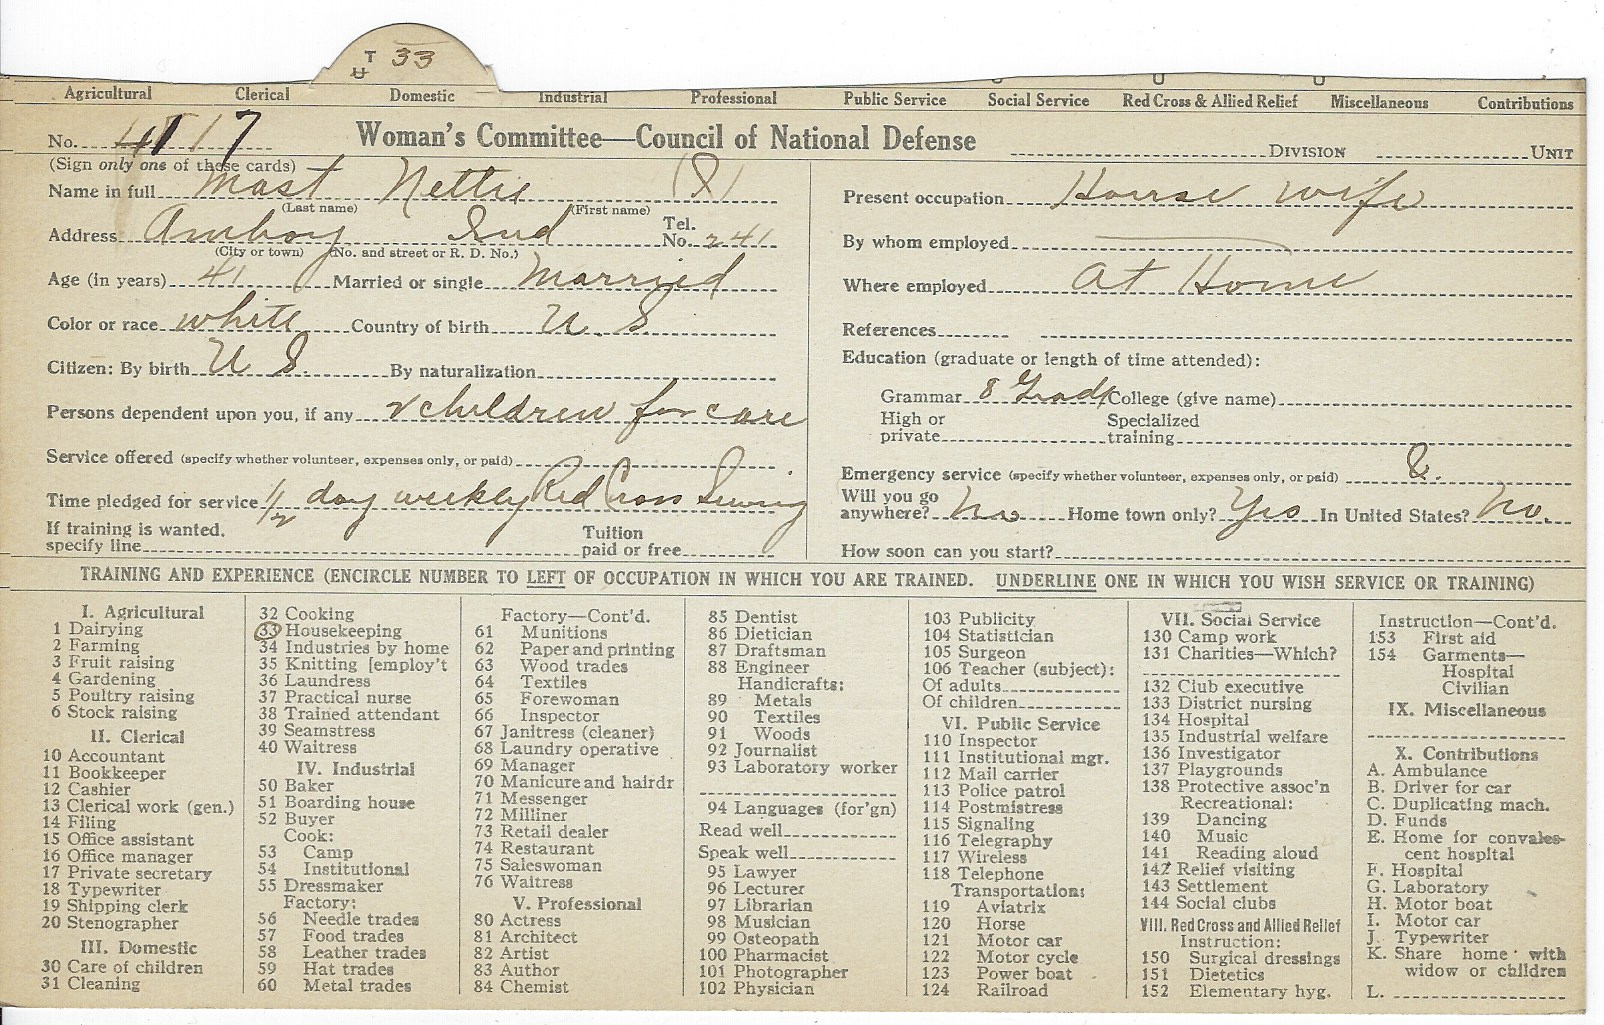 T 33
U
Agricultural Clerical Domestic Industrial Professional Public Service Social Service Red Cross & Allied Relief Miscellaneous Contributions
No. 4117 Woman's Committee—Council of National Defense DIVISION UNIT
(Sign only one of these cards)
Name in full Mast Nettie
(Last name) (First name)
Address Amboy Ind Tel. No. 241
(City or town) (No. and street or R. D. No.)
Age (in years) 41 Married or single Married
Color or race white Country of birth U. S
Citizen: By birth U S. By naturalization
Persons dependent upon you, if any 2 children for care
Service offered (specify whether volunteer, expenses only, or paid)
Time pledged for service 1/2 day weekly Red Cross Sewing
If training is wanted, specify line Tuition paid or free
Present occupation House wife
By whom employed
Where employed at Home
References
Education (graduate or length of time attended):
Grammar 8 Grade College (give name)
High or private Specialized training
Emergency service (specify whether volunteer, expenses only, or paid)
Will you go anywhere? No Home town only? Yes In United States? No.
How soon can you start?
TRAINING AND EXPERIENCE (ENCIRCLE NUMBER TO LEFT OF OCCUPATION IN WHICH YOU ARE TRAINED. UNDERLINE ONE IN WHICH YOU WISH SERVICE OR TRAINING)
I. Agricultural
1 Dairying
2 Farming
3 Fruit raising
4 Gardening
5 Poultry raising
6 Stock raising
II. Clerical
10 Accountant
11 Bookkeeper
12 Cashier
13 Clerical work (gen.)
14 Filing
15 Office assistant
16 Office manager
17 Private secretary
18 Typewriter
19 Shipping clerk
20 Stenographer
III. Domestic
30 Care of children
31 Cleaning
32 Cooking
33 Housekeeping
34 Industries by home
35 Knitting [employ't
36 Laundress
37 Practical nurse
38 Trained attendant
39 Seamstress
40 Waitress
IV. Industrial
50 Baker
51 Boarding house
52 Buyer
Cook:
53 Camp
54 Institutional
55 Dressmaker
Factory:
56 Needle trades
57 Food trades
58 Leather trades
59 Hat trades
60 Metal trades
Factory—Cont'd.
61 Munitions
62 Paper and printing
63 Wood trades
64 Textiles
65 Forewoman
66 Inspector
67 Janitress (cleaner)
68 Laundry operative
69 Manager
70 Manicure and hairdr
71 Messenger
72 Milliner
73 Retail dealer
74 Restaurant
75 Saleswoman
76 Waitress
V. Professional
80 Actress
81 Architect
82 Artist
83 Author
84 Chemist
85 Dentist
86 Dietician
87 Draftsman
88 Engineer
Handicrafts:
89 Metals
90 Textiles
91 Woods
92 Journalist
93 Laboratory worker
94 Languages (for'gn)
Read well
Speak well
95 Lawyer
96 Lecturer
97 Librarian
98 Musician
99 Osteopath
100 Pharmacist
101 Photographer
102 Physician
103 Publicity
104 Statistician
105 Surgeon
106 Teacher (subject):
Of adults
Of children
VI. Public Service
110 Inspector
111 Institutional mgr.
112 Mail carrier
113 Police patrol
114 Postmistress
115 Signaling
116 Telegraphy
117 Wireless
118 Telephone
Transportation:
119 Aviatrix
120 Horse
121 Motor car
122 Motor cycle
123 Power boat
124 Railroad
VII. Social Service
130 Camp work
131 Charities—Which?
132 Club executive
133 District nursing
134 Hospital
135 Industrial welfare
136 Investigator
137 Playgrounds
138 Protective assoc'n
Recreational:
139 Dancing
140 Music
141 Reading aloud
142 Relief visiting
143 Settlement
144 Social clubs
VIII. Red Cross and Allied Relief
Instruction:
150 Surgical dressings
151 Dietetics
152 Elementary hyg.
Instruction—Cont'd.
153 First aid
154 Garments—
Hospital
Civilian
IX. Miscellaneous
X. Contributions
A. Ambulance
B. Driver for car
C. Duplicating mach.
D. Funds
E. Home for convales-
cent hospital
F. Hospital
G. Laboratory
H. Motor boat
I. Motor car
J. Typewriter
K. Share home with
widow or children
L.